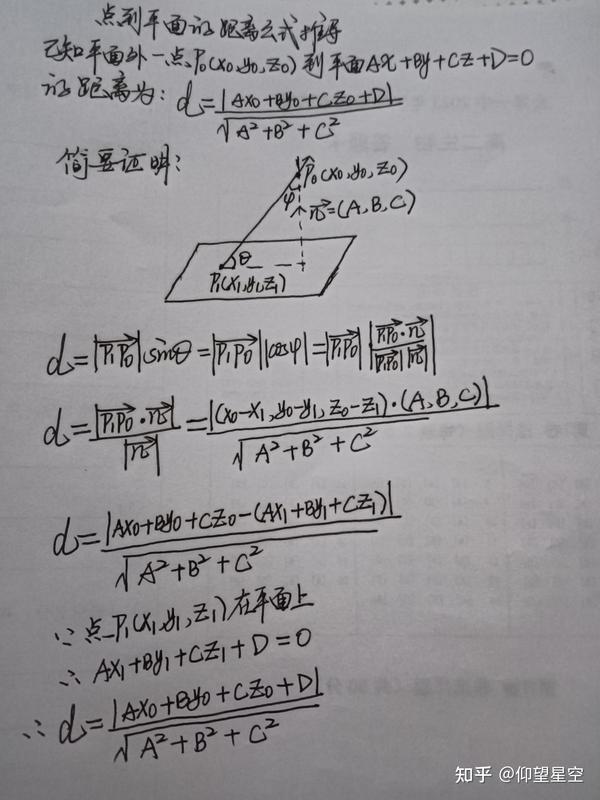 点到平面的距离公式推导
已知平面外一点P₀(x₀,y₀,z₀)到平面Ax+By+Cz+D=0
的距离为: d=|Ax₀+By₀+Cz₀+D|/√(A²+B²+C²)
简要证明:
P₀(x₀,y₀,z₀)
φ
n⃗=(A,B,C)
θ
P₁(x₁,y₁,z₁)
d=|P₁P₀⃗|sinθ=|P₁P₀⃗||cosφ|=|P₁P₀⃗||P₁P₀⃗·n⃗/|P₁P₀⃗||n⃗||
d=|P₁P₀⃗·n⃗|/|n⃗|=|(x₀-x₁,y₀-y₁,z₀-z₁)·(A,B,C)|/√(A²+B²+C²)
d=|Ax₀+By₀+Cz₀-(Ax₁+By₁+Cz₁)|/√(A²+B²+C²)
∵点P₁(x₁,y₁,z₁)在平面上
∴Ax₁+By₁+Cz₁+D=0
∴d=|Ax₀+By₀+Cz₀+D|/√(A²+B²+C²)
知乎 @仰望星空